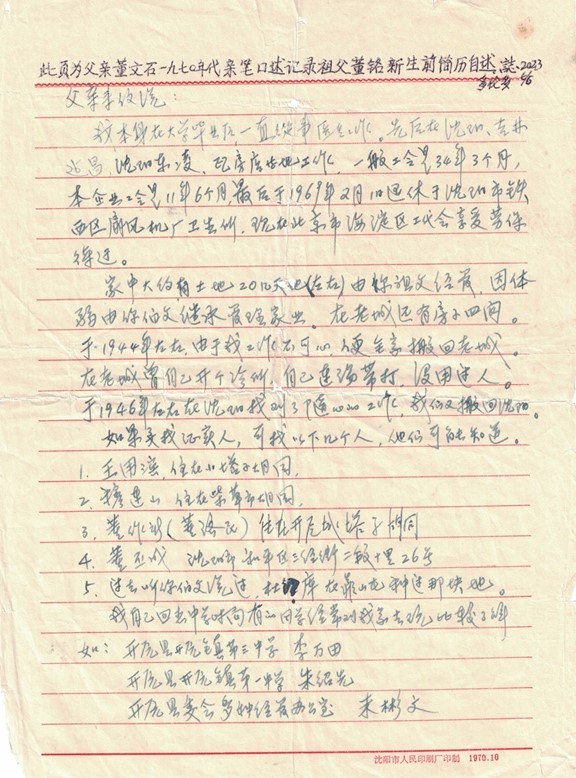 此页为父亲董文石一九七〇年代亲笔口述记录祖父董铭新生前简历自述.誌.2023
6/6
父亲来信说：
我本身在大学毕业后，一直从事医生工作。先后在沈阳、吉林
沈阳东凌、瓦房店等地工作，一般工令是34年3个月，
本企业工令是11年6个月最后于1969年2月10退休于沈阳市铁
西区扇风机厂卫生所，现在北京市海淀区工代会享受劳保
待遇。
家中大约有土地20几天地(左右)由你祖父经营，因体
弱由你伯父继承管理家业。在老城还有房子四间。
于1944年左右，由于我工作不可心，便全家搬回老城。
在老城曾自己开个诊所，自己连汤带打，没用过人。
于1946年左右在沈阳找到了随心的工作，我们又搬回沈阳。
如果要找证实人，可找以下几个人，他们可能知道。
1. 王用滨，住在小塔子胡同。
2. 连山 住在柴草市胡同。
3. 董作新(董洛民) 住在开原城塔子胡同
4. 董丕成 沈阳市和平区三经街二段十里26号
5. 过去听你伯父说过，杜 库在靠山屯种过那块地。
我自己回去中学时间有的同学经常到我家去玩比较了解
如：开原县开原镇第三中学 李万田
开原县开原镇第一中学 朱绍先
开原县委会多种经营办公室 来彬文
沈阳市人民印刷厂印制 1970.10